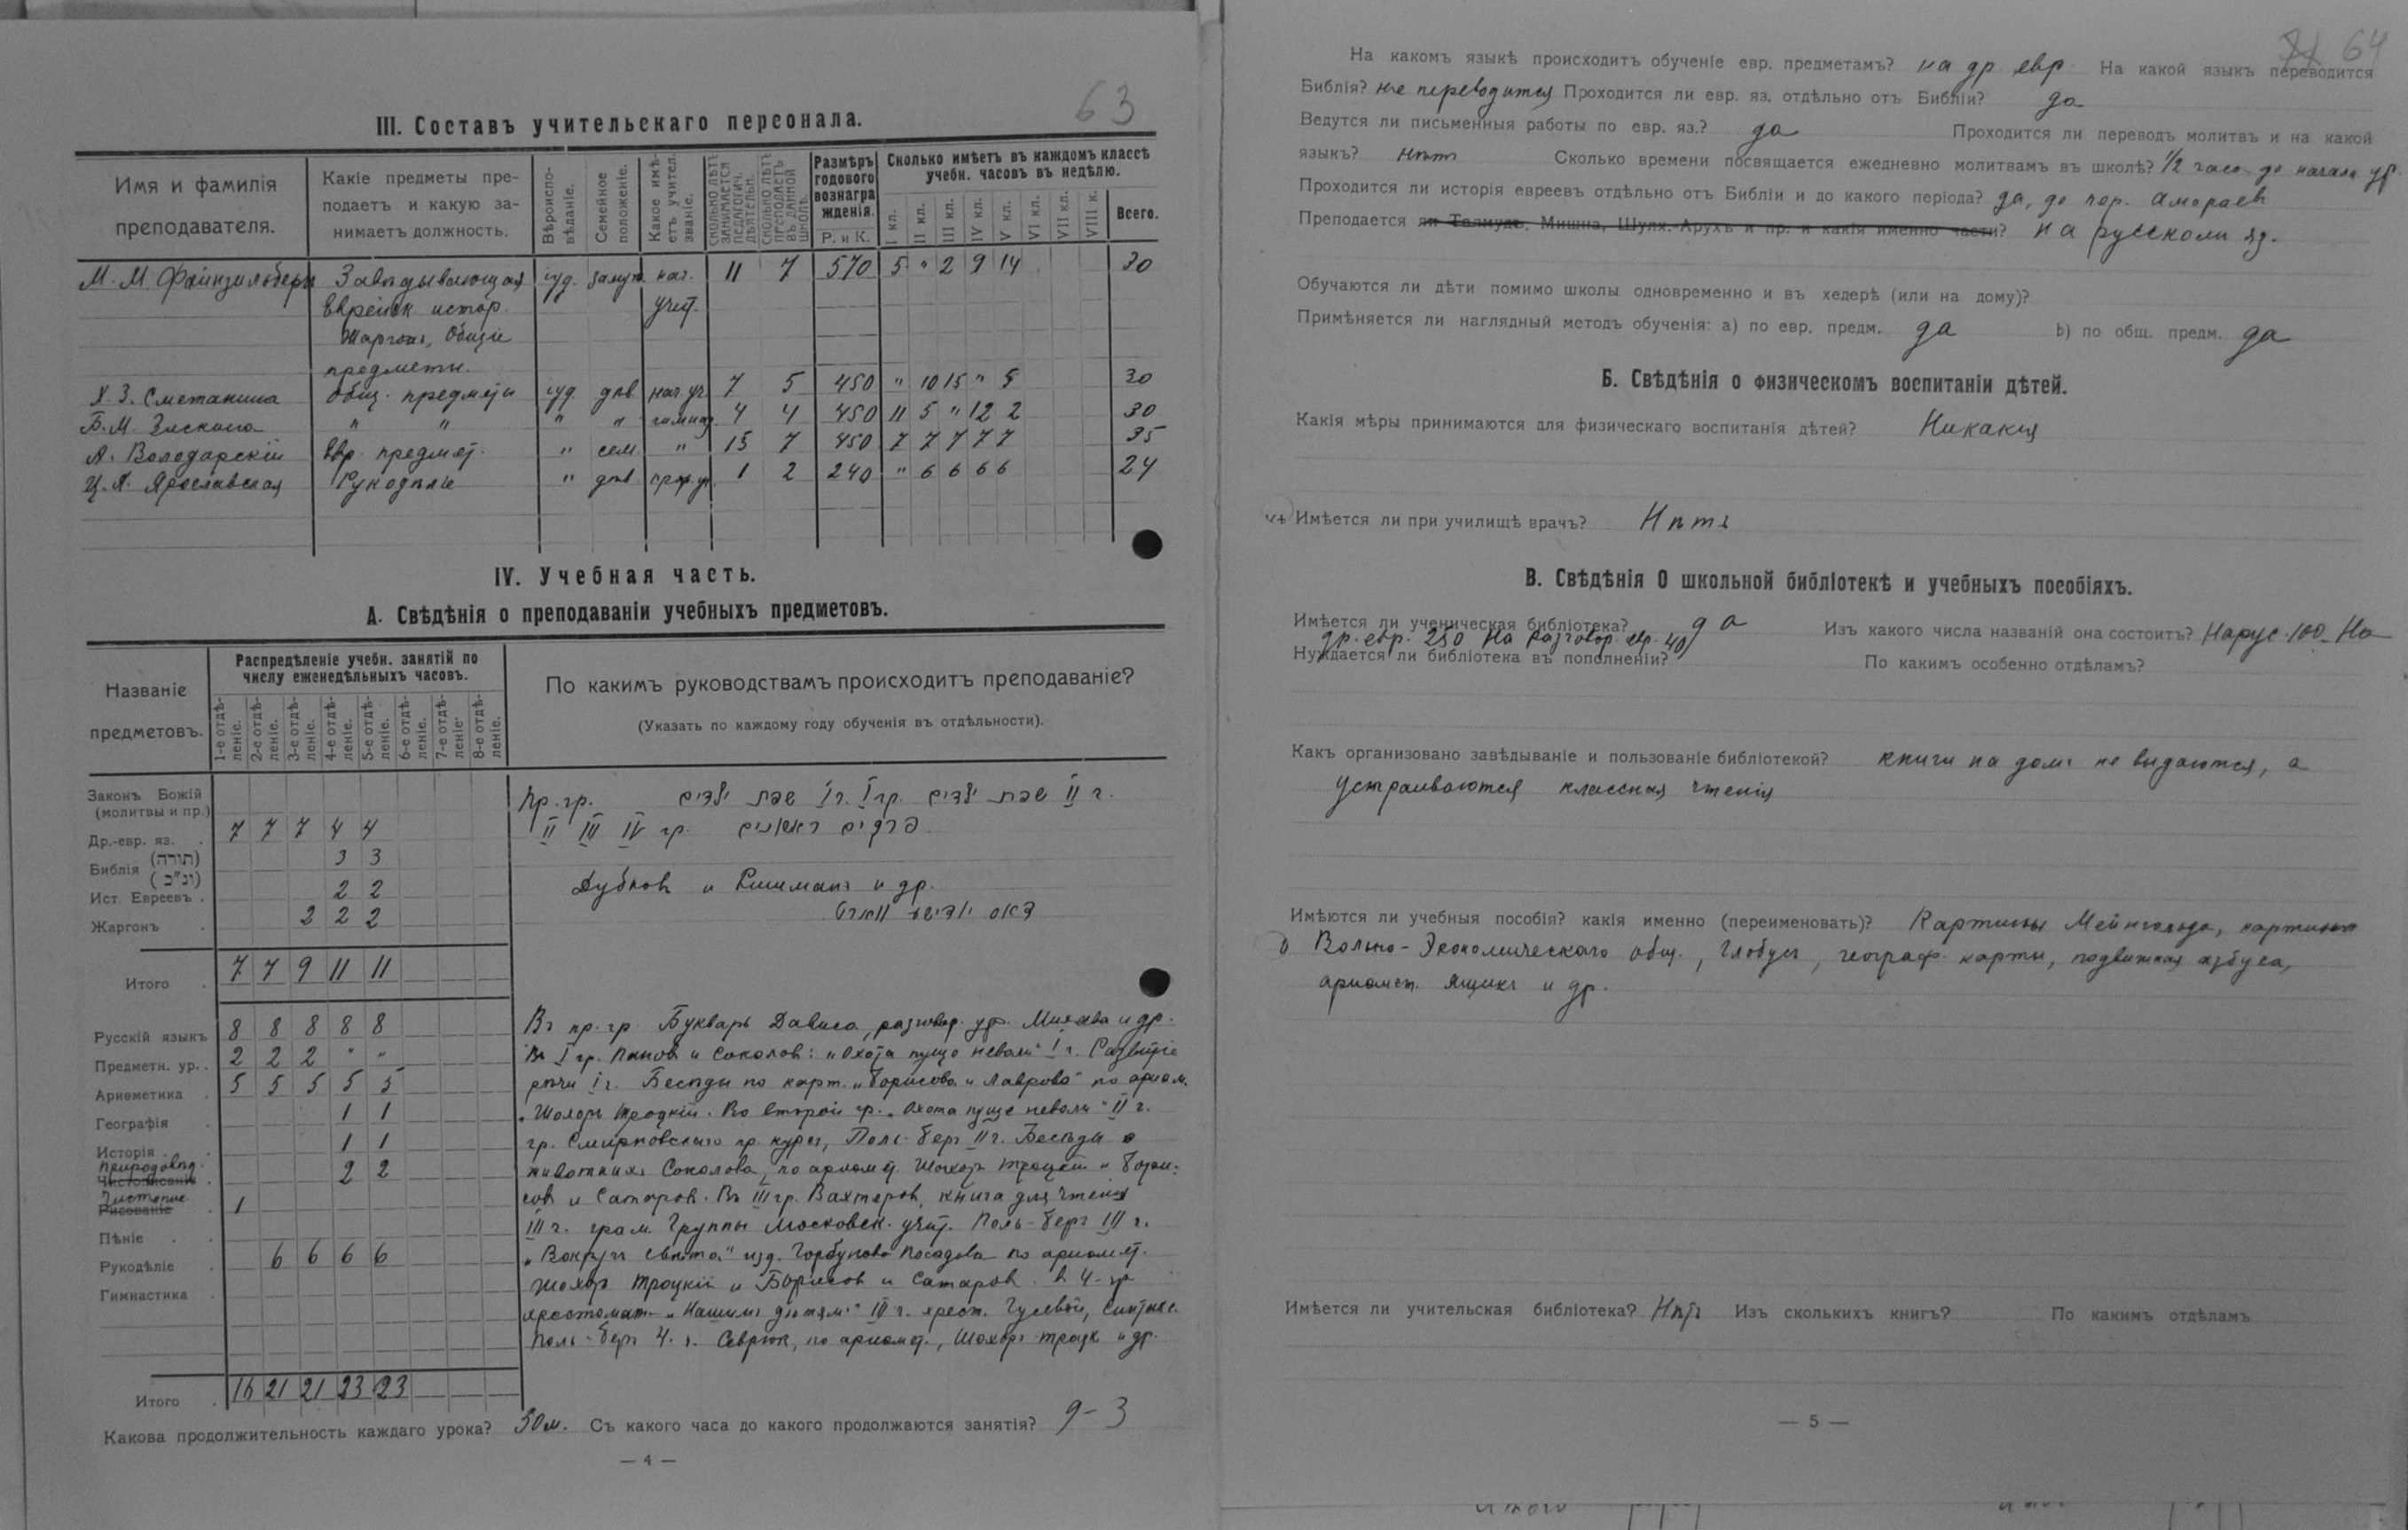 63
III. Составъ учительскаго персонала.
Имя и фамилія преподавателя.
Какіе предметы преподаетъ и какую занимаетъ должность.
Вѣроисповѣданіе.
Семейное положеніе.
Какое имѣетъ учител. званіе.
Сколько лѣтъ занимается педагогич. дѣятельн.
Сколько лѣтъ преподаетъ въ данной школѣ.
Размѣръ годового вознагражденія. Р. и К.
Сколько имѣетъ въ каждомъ классѣ учебн. часовъ въ недѣлю.
I кл. II кл. III кл. IV кл. V кл. VI кл. VII кл. VIII к. Всего.
М. М. Файнзильбергъ Завѣдывающая іуд. замуж. нач. 11 7 570 5 " 2 9 14 30
Еврейск истор. учит.
Жаргонъ, Общіе
предметы.
Х З. Сметанина общ. предметы іуд. дѣв. нач. уч. 7 5 450 " 10 15 " 5 30
Б. М. " " " " 4 4 450 11 5 " 12 2 30
А. Володарскій Евр. предмет. " сем. " 15 7 450 7 7 7 7 7 35
Ц. Я. Ярославская Рукодѣліе " дѣв. 1 2 240 " 6 6 6 6 24
IV. Учебная часть.
А. Свѣдѣнія о преподаваніи учебныхъ предметовъ.
Названіе предметовъ.
Распредѣленіе учебн. занятій по числу еженедѣльныхъ часовъ.
1-е отдѣленіе. 2-е отдѣленіе. 3-е отдѣленіе. 4-е отдѣленіе. 5-е отдѣленіе. 6-е отдѣленіе. 7-е отдѣленіе. 8-е отдѣленіе.
По какимъ руководствамъ происходитъ преподаваніе?
(Указать по каждому году обученія въ отдѣльности).
Законъ Божій
(молитвы и пр.)
Др.-евр. яз. 7 7 7 4 4
Библія (תורה) 3 3
(ונ"כ)
Ист. Евреевъ 2 2
Жаргонъ 2 2 2
Пр. гр. שפת ילדים I ч. I гр. שפת ילדים II ч.
II III IV гр. פרקים ראשונים
Дубновъ и и др.
דאס יידישע ווארט
Итого 7 7 9 11 11
Русскій языкъ 8 8 8 8 8
Предметн. ур. 2 2 2 " "
Ариѳметика 5 5 5 5 5
Географія 1 1
Исторія 1 1
Природовѣд. 2 2
Чистописаніе
Чистопис. 1
Рисованіе
Пѣніе
Рукодѣліе 6 6 6 6
Гимнастика
Въ пр. гр. Букварь разговор. ур. и др.
Въ I гр. Пановъ и Соколовъ: "Охота пуще неволи" I ч. Развитіе
рѣчи I ч. Бесѣды по карт. "Борисова и Лаврова" по ариѳм.
"Шохоръ Троцкій. Во второй гр. "Охота пуще неволи" II ч.
гр. Смирновскаго пр. курсъ, Поль-беръ II ч. Бесѣды о
животныхъ Соколова, по ариѳмет. Шохоръ Троцкій и Борисовъ
и Сатаровъ. Въ III гр. Вахтеровъ, книга для чтенія
III ч. грам. Группы Московск. учит. Поль-беръ III ч.
"Вокругъ свѣта" изд. Горбунова Посадова по ариѳмет.
Шохоръ Троцкій и Борисовъ и Сатаровъ. въ 4-гр
хрестомат. "Нашимъ дѣтямъ" III ч. хрест. Гусевой, Синтакс.
Поль-беръ 4. ч. Севрюк, по ариѳмет., Шохоръ троцк и др.
Итого 16 21 21 23 23
Какова продолжительность каждаго урока? 50 м. Съ какого часа до какого продолжаются занятія? 9-3
— 4 —
64
На какомъ языкѣ происходитъ обученіе евр. предметамъ? на др. евр. На какой языкъ переводится
Библія? не переводится Проходится ли евр. яз. отдѣльно отъ Библіи? да
Ведутся ли письменныя работы по евр. яз.? да Проходится ли переводъ молитвъ и на какой
языкъ? нѣтъ Сколько времени посвящается ежедневно молитвамъ въ школѣ? 1/2 часа до начала ур.
Проходится ли исторія евреевъ отдѣльно отъ Библіи и до какого періода? да, до пер. Амораевъ
Преподается ли Талмудъ, Мишна, Шулх.-Арухъ и пр. и какія именно части? на русскомъ яз.
Обучаются ли дѣти помимо школы одновременно и въ хедерѣ (или на дому)?
Примѣняется ли наглядный методъ обученія: а) по евр. предм. да b) по общ. предм. да
Б. Свѣдѣнія о физическомъ воспитаніи дѣтей.
Какія мѣры принимаются для физическаго воспитанія дѣтей? Никакія
Имѣется ли при училищѣ врачъ? Нѣтъ
В. Свѣдѣнія о школьной библіотекѣ и учебныхъ пособіяхъ.
Имѣется ли ученическая библіотека? да Изъ какого числа названій она состоитъ? На рус. 100 На
др. евр. 250 На разговор. евр. 40
Нуждается ли библіотека въ пополненіи? По какимъ особенно отдѣламъ?
Какъ организовано завѣдываніе и пользованіе библіотекой? книги на домъ не выдаются, а
устраиваются классныя чтенія
Имѣются ли учебныя пособія? какія именно (переименовать)? Картины Мейнгольда, картины
Вольно-Экономическаго общ., Глобусъ, географ. карты, подвижная азбука,
ариѳмет. ящикъ и др.
Имѣется ли учительская библіотека? Нѣтъ Изъ сколькихъ книгъ? По какимъ отдѣламъ
— 5 —